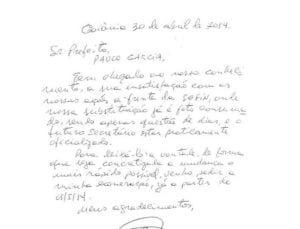 Goiânia 30 de abril de 2014.
Sr. Prefeito,
PAULO GARCIA,
Tem chegado ao nosso conheci
mento, a sua insatisfação com as
nossas ações a frente da SEFIN, onde
nossa substituição já é fato consuma
do, sendo apenas questão de dias, e o
futuro Secretário estar praticamente
oficializado.
Para deixá-lo a vontade, de forma
que seja concretizada a mudança o
mais rápido possível, venho pedir a
minha exoneração, já a partir de
Meus agradecimentos,